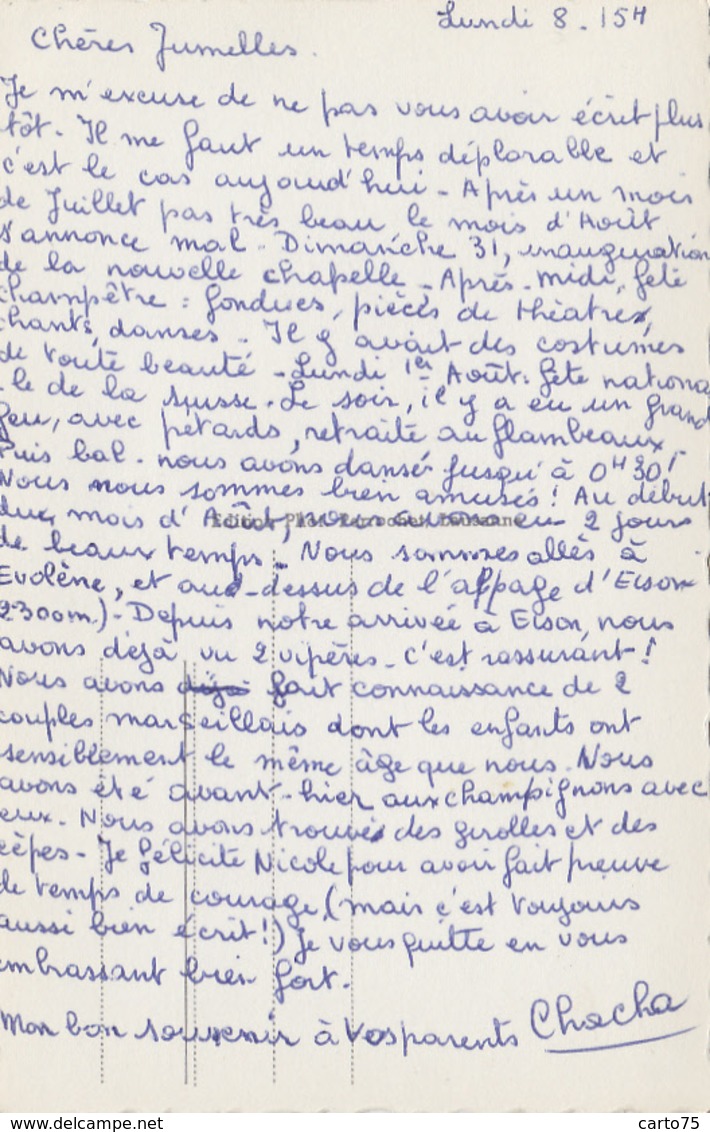 Lundi 8. 15H
Chères Jumelles.
Je m'excuse de ne pas vous avoir écrit plus
tôt. Il me faut un temps déplorable et
c'est le cas aujourd'hui - Après un mois
de Juillet pas très beau le mois d'Août
s'annonce mal. Dimanche 31, inauguration
de la nouvelle chapelle - Après-midi, fête
champêtre : fondues, pièces de théatres,
chants, danses. Il y avait des costumes
de toute beauté - Lundi 1er Août : fête nationa
-le de la Suisse. Le soir, il y a eu un grand
feu, avec pétards, retraite au flambeaux,
Puis bal. nous avons dansé jusqu'à 0H30!
Nous nous sommes bien amusés! Au début
du mois d'Août, nous avons eu 2 jours
de beau temps - Nous sommes allés à
Evolène, et au-dessus de l'alpage d'Eison
2300m.) - Depuis notre arrivée à Eison, nous
avons déjà vu 2 vipères - c'est rassurant!
Nous avons déjà fait connaissance de 2
couples marseillais dont les enfants ont
sensiblement le même âge que nous. Nous
avons été avant-hier aux champignons avec
eux. Nous avons trouvés des girolles et des
cèpes - Je félicite Nicole pour avoir fait preuve
de temps de courage (mais c'est toujours
aussi bien écrit!) Je vous quitte en vous
embrassant bien fort.
Mon bon souvenir à vos parents Chacha
carto75